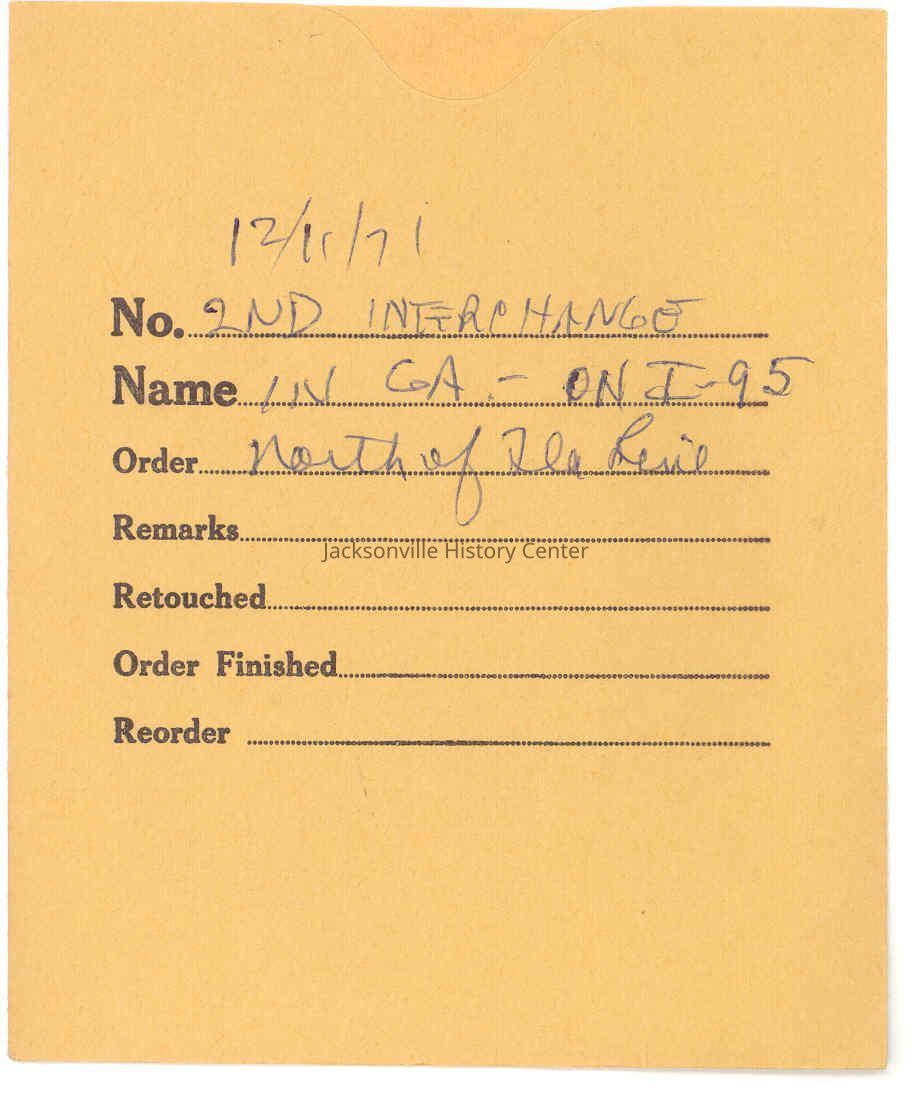 12/11/71
No. 2ND INTERCHANGE
Name IN GA. - ON I-95
Order North of Fla Line
Remarks
Jacksonville History Center
Retouched
Order Finished
Reorder